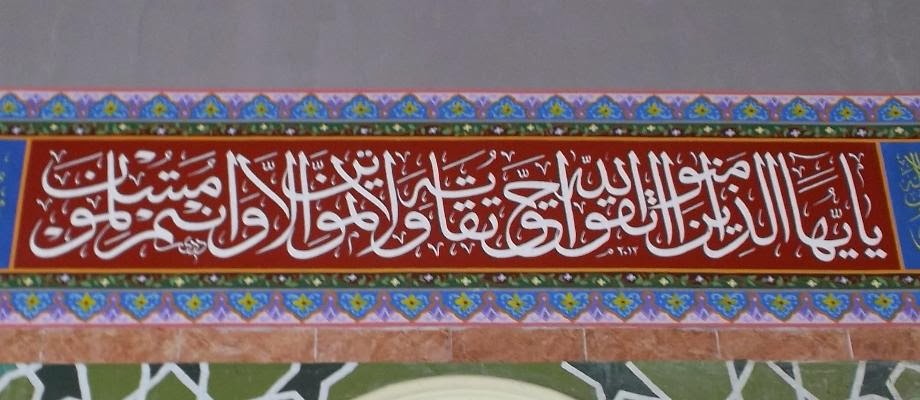 يا يها الذين امنوا اتقوا الله حق تقاته ولا تموتن الا وانتم مسلمون
٢٠١٢ م